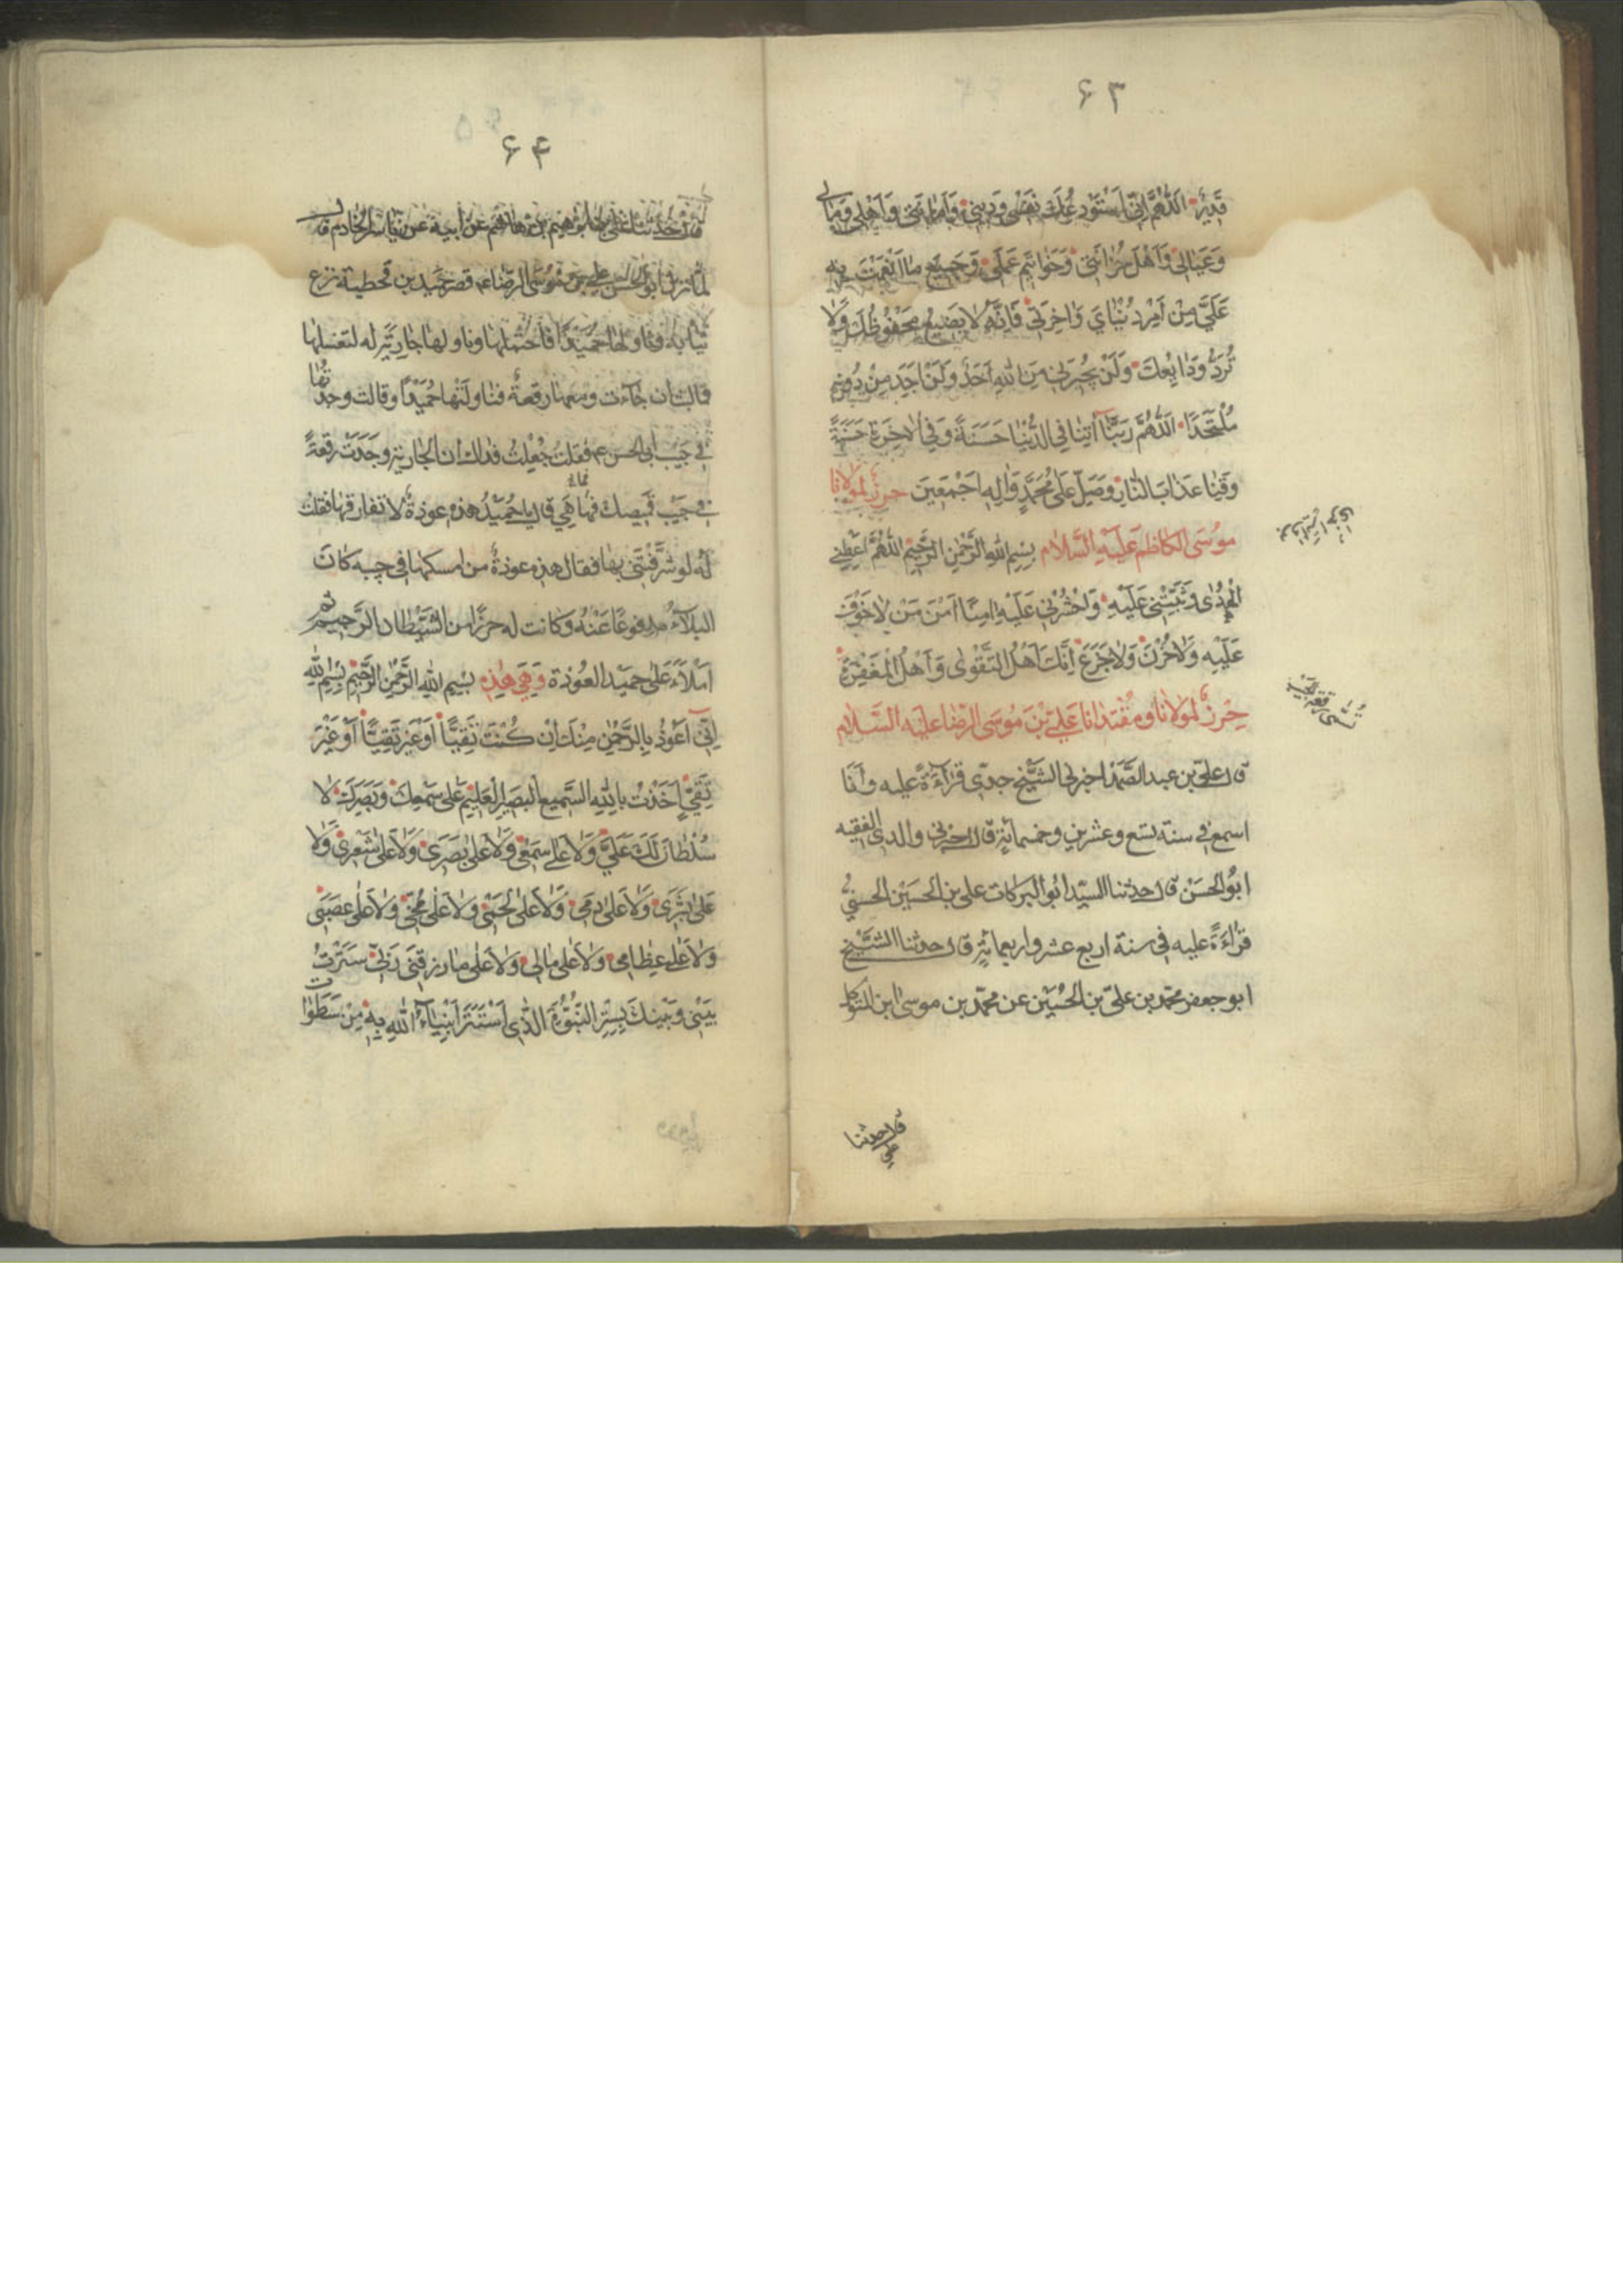 ۶۳
قَدِيرٌ اَللّٰهُمَّ اِنّى اَسْتَوْدِعُكَ نَفْسى وَدينى وَاَمانَتى وَاَهْلى وَمالى
وَعَيالى وَاَهْلَ حُزانَتى وَخَواتيمَ عَمَلى وَجَميعَ ما اَنْعَمْتَ بِه
عَلَىَّ مِنْ اَمْرِ دُنْياىَ وَاخِرَتى فَاِنَّهُ لا يَضيعُ مَحْفُوظُكَ وَلا
تُرَدُّ وَدائِعُكَ وَلَنْ يُجيرَنى مِنَ اللهِ اَحَدٌ وَلَنْ اَجِدَ مِنْ دُونِه
مُلْتَحَدًا اَللّٰهُمَّ رَبَّنا آتِنا فِى الدُّنْيا حَسَنَةً وَفِى الاخِرَةِ حَسَنَةً
وَقِنا عَذابَ النّارِ وَصَلِّ عَلى مُحَمَّدٍ وَالِه اَجْمَعينَ حرز لمولانا
موُسَى الكاظم عَلَيْهِ السَّلام بِسْمِ اللهِ الرَّحْمٰنِ الرَّحيمِ اللّٰهُمَّ اَعْطِنى
الْهُدٰى وَثَبِّتْنى عَلَيْهِ وَاحْشُرْنى عَلَيْهِ امِنًا اَمْنَ مَنْ لا خَوْفَ
عَلَيْهِ وَلا حُزْنَ وَلا جَزَعَ اِنَّكَ اَهْلُ التَّقْوٰى وَاَهْلُ الْمَغْفِرَةِ
حِرزٌ لمولانا ومُقْتدانا عَلِىِّ بْنِ مُوسَى الرّضا عليه السَّلام
قال علىّ بن عبد الصَّمد اخبرنى الشيَّخ جدّى قرآءةً عليه وأنَا
اسمع فى سنة تسع وعشرين وخمسمائة قال اخبرنى والدى الفقيه
ابوُ الحسَنْ قال حدثنا السيّد ابوُ البركات على بن الحسَيْن الحسنىُّ
قرآءَةً عليه فى سنة اربع عشر واربعمائةٍ قال حدثنا الشيَّخ
ابو جعفر محمّد بن علىّ بن الحُسَيْن عن محمّد بن موسى ابن المتوكل
تسمّى رقعة الجيب
قال حدثنا على
۶۴
قال حدثنا على بن ابراهيم بن هاشم عن ابيه عن ياسر الخادم قال
لمّا نزل ابو الحسن على بن موُسَى الرّضا ع قصر حُمَيد بن قحطبة نزع
ثيابه وناولها حُمَيْدًا فاحتملها وناولها جارية له لتغسلها
فما لبث ان جاءت ومعها رقعةٌ فناولتها حُمَيْدًا وقالت وجدتها
فى جَيْب ابى الحسن ع فقلت جُعِلْتُ فداك ان الجارية وجَدَتْ رقعةً
فى جَيْب قميصك فما هى قال يا حُمَيْدُ هذه عوذةٌ لا نفارقها فقلت
له لو شرّفْتَنى بها فقال هذه عوذةٌ من امسكها فى جيبه كان
البلآءُ مدفوعًا عَنْهُ وكانت له حرزًا من الشَّيْطان الرَّجيم ثم
اَمْلآءَ عَلى حميد العُوذة وَهِىَ هٰذِه بِسْمِ اللهِ الرَّحْمٰنِ الرَّحيمِ بِسْمِ اللهِ
اِنّى اَعُوذُ بِالرَّحْمٰنِ مِنْكَ اِنْ كُنْتَ تَقِيًّا اَوْ غَيْرَ تَقِيًّا اَوْ غَيْرَ
تَقِىٍّ اَخَذْتُ بِاللهِ السَّميعِ الْبَصيرِ الْعَليمِ عَلى سَمْعِكَ وَبَصَرِكَ لا
سُلْطانَ لَكَ عَلَىَّ وَلا عَلى سَمْعى وَلا عَلى بَصَرى وَلا عَلى شَعْرى وَلا
عَلى بَشَرى وَلا عَلى دَمى وَلا عَلى لَحْمى وَلا عَلى مُخّى وَلا عَلى عَصَبى
وَلا عَلى عِظامى وَلا عَلى مالى وَلا عَلى ما رَزَقَنى رَبّى سَتَرْتُ
بَيْنى وَبَيْنَكَ بِسِتْرِ النُّبُوَّةِ الَّذى اسْتَتَرَ اَنْبِيآءُ اللهِ بِه مِنْ سَطَواتِ